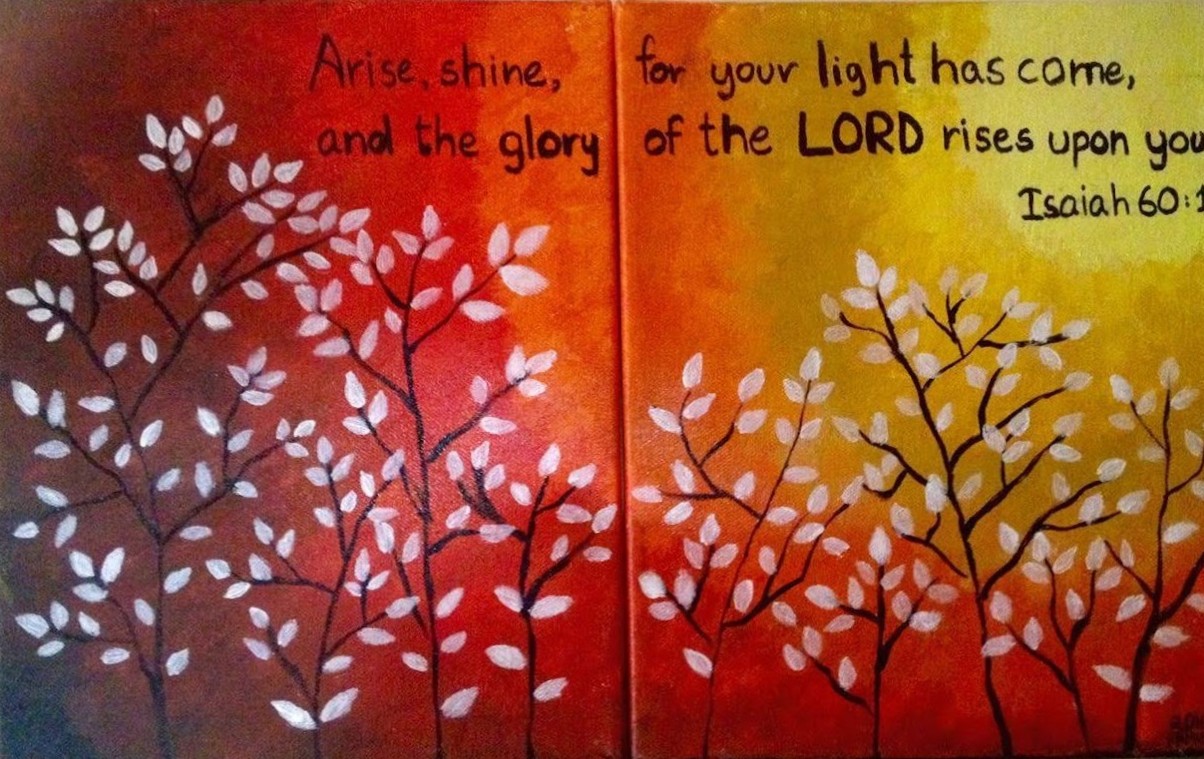 Arise, shine, for your light has come,
and the glory of the LORD rises upon you
Isaiah 60:1